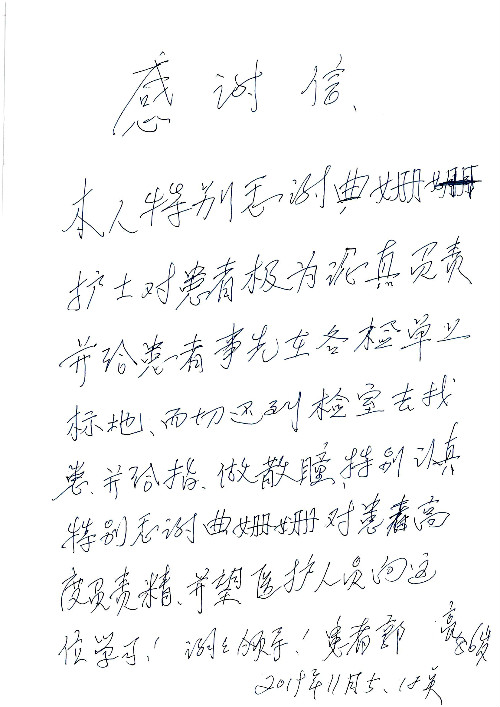 感谢信、
本人特别感谢典姗
护士对患者极为认真负责
并给患者事先在各检单上
标地、而切还到检室去找
患、并给指、做散瞳、特别认真
特别感谢曲姗姗对患者高
度负责精、并望医护人员向这
位学习！谢谢领导！患者郭 86岁
2019年11月5、